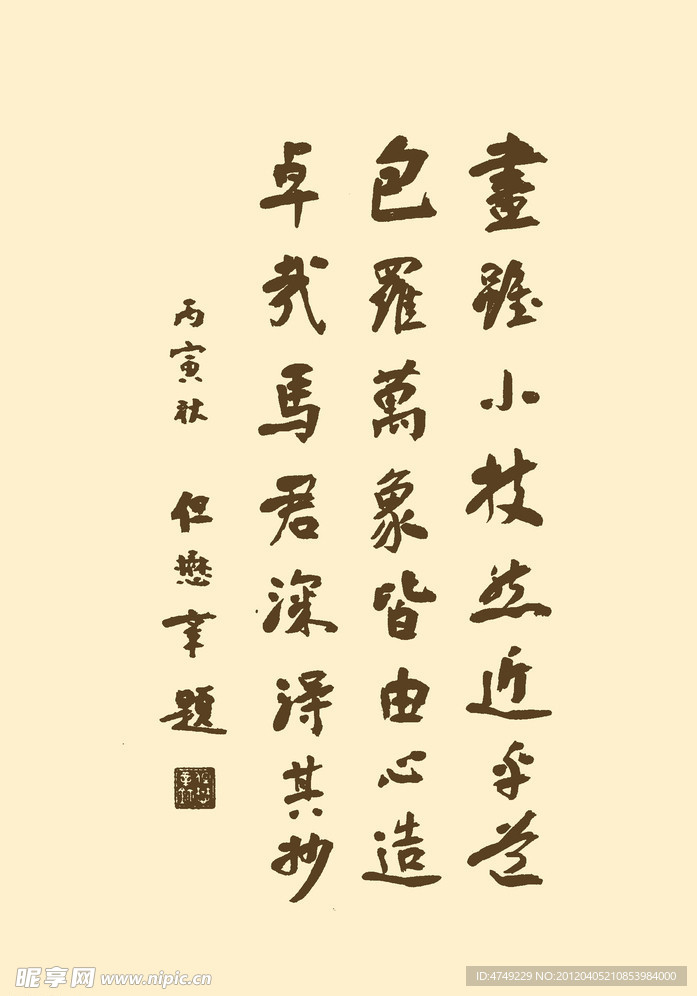 畫雖小技然近乎道
包羅萬象皆由心造
卓哉馬君深得其抄
丙寅秋 但懋辛題
昵享网 www.nipic.cn
ID:4749229 NO:20120405210853984000